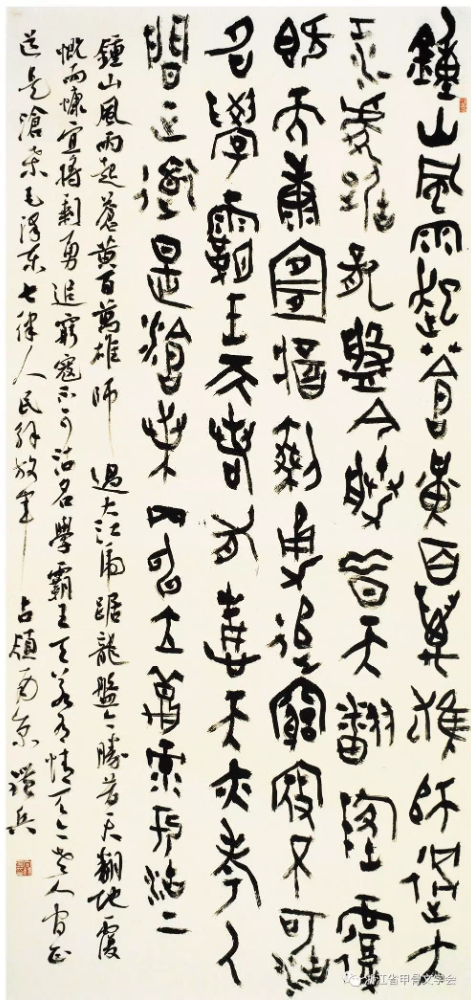 鍾山風雨起蒼黃百萬雄師過大
江虎踞龍盤今勝昔天翻地覆
慨而慷宜將剩勇追窮寇不可沽
名學霸王天若有情天亦老人
間正道是滄桑
鍾山風雨起蒼黃百萬雄師過大江虎踞龍盤今勝昔天翻地覆
慨而慷宜將剩勇追窮寇不可沽名學霸王天若有情天亦老人間正
道是滄桑毛澤東七律人民解放軍占領南京
浙江省甲骨文学会